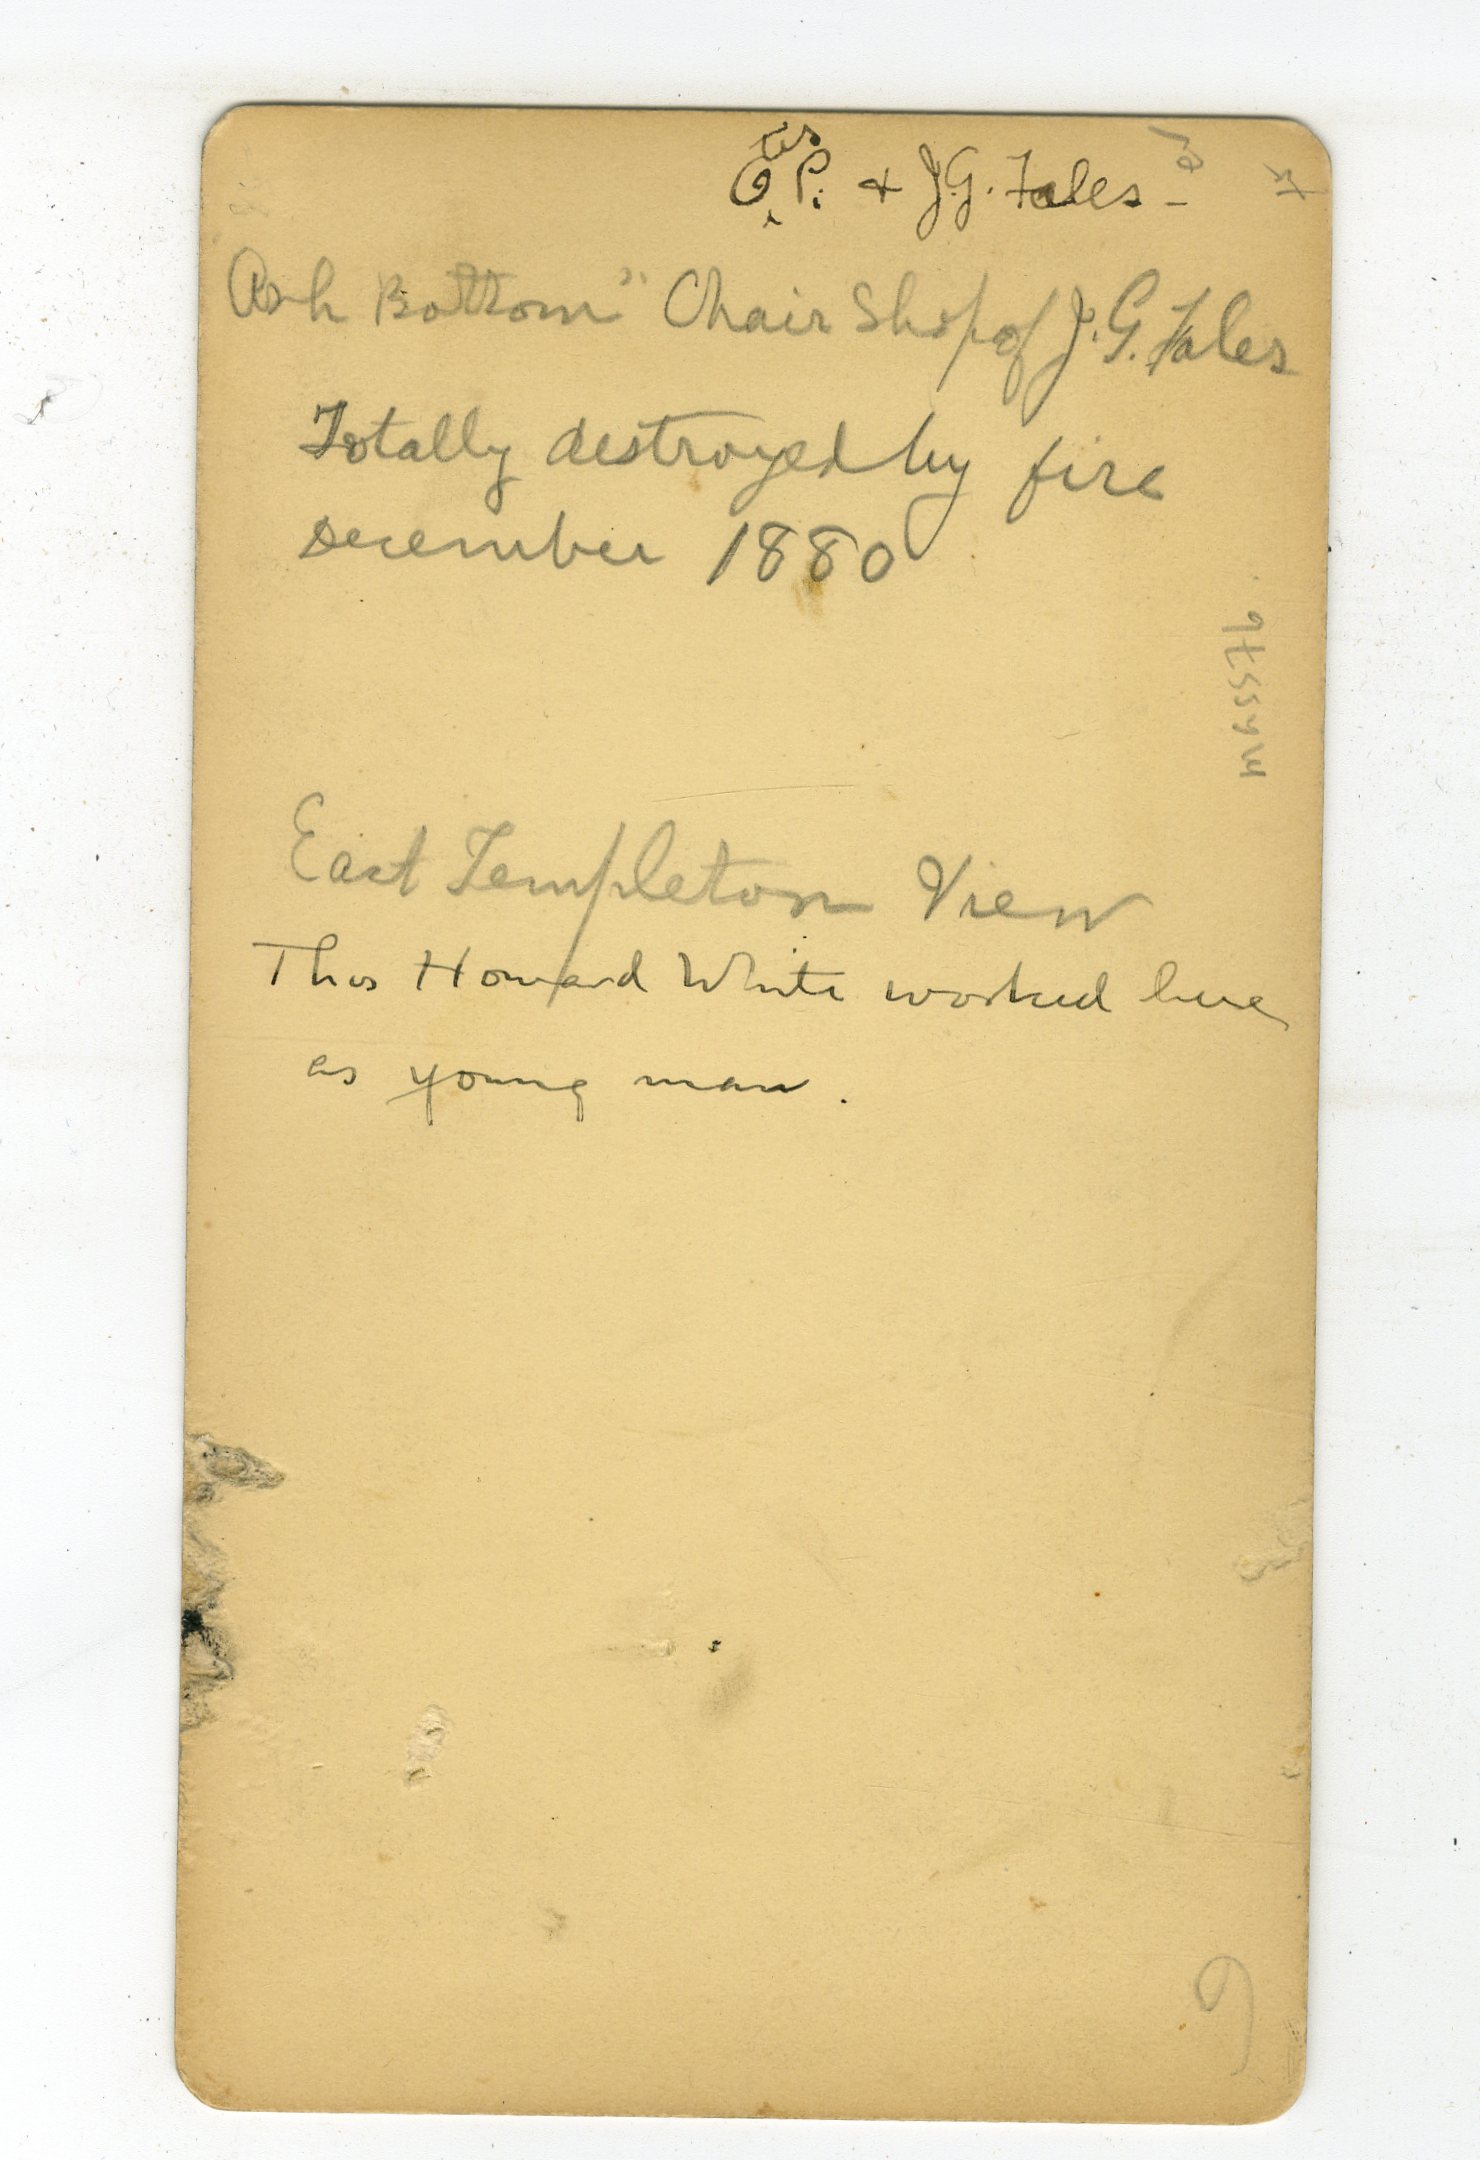 O.P. & J.G. Fales -
Ash Bottom" Chair Shop of J. G. Fales
Totally destroyed by fire
December 1880
East Templeton View
Thos Howard White worked here
as young man.